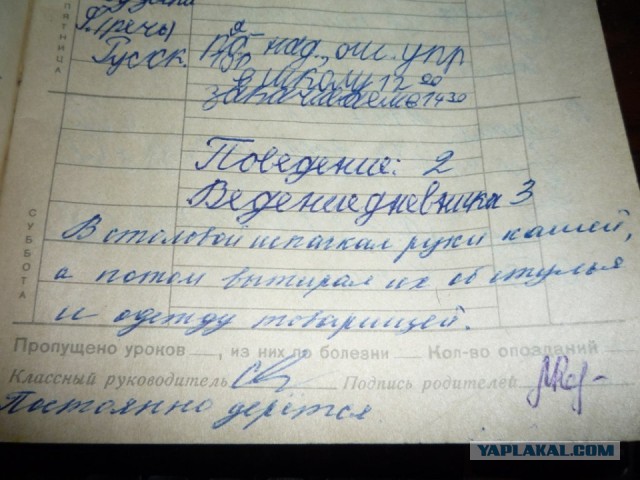 ПЯТНИЦА
Русск.
над, ош. упр
в школу 12 00
заканчиваем 14 30
Поведение: 2
Ведение дневника 3
СУББОТА
В столовой испачкал руки кашей,
а потом вытирал их об стулья
и одежду товарищей.
Пропущено уроков __, из них по болезни __ Кол-во опозданий
Классный руководитель __ Подпись родителей
Постоянно дерётся
YAPLAKAL.COM